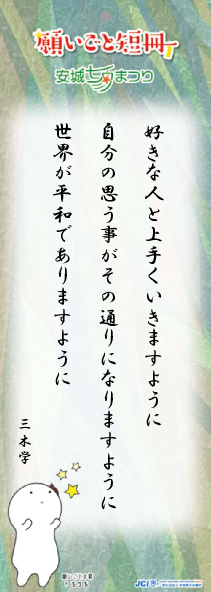 願いごと短冊
安城七夕まつり
好きな人と上手くいきますように
自分の思う事がその通りになりますように
世界が平和でありますように
三木学
JCI